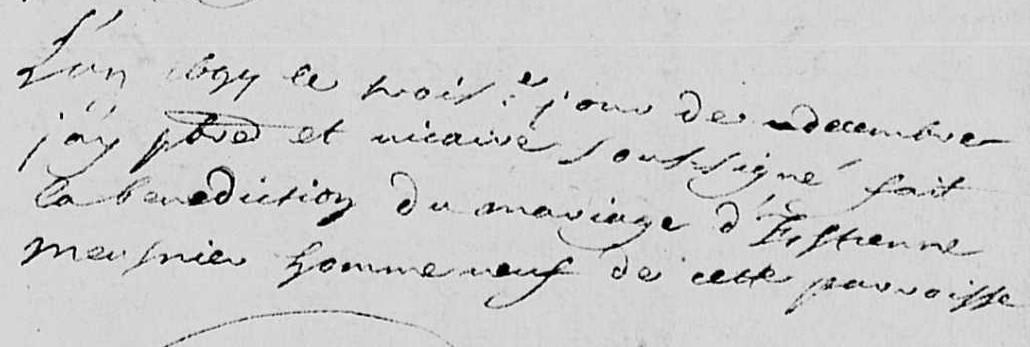 L'an le trois.e jour de decembre
j'ay pbre et vicaire soubsigné fait
la benediction du mariage d'Estienne
meusnier homme neuf de cette parroisse